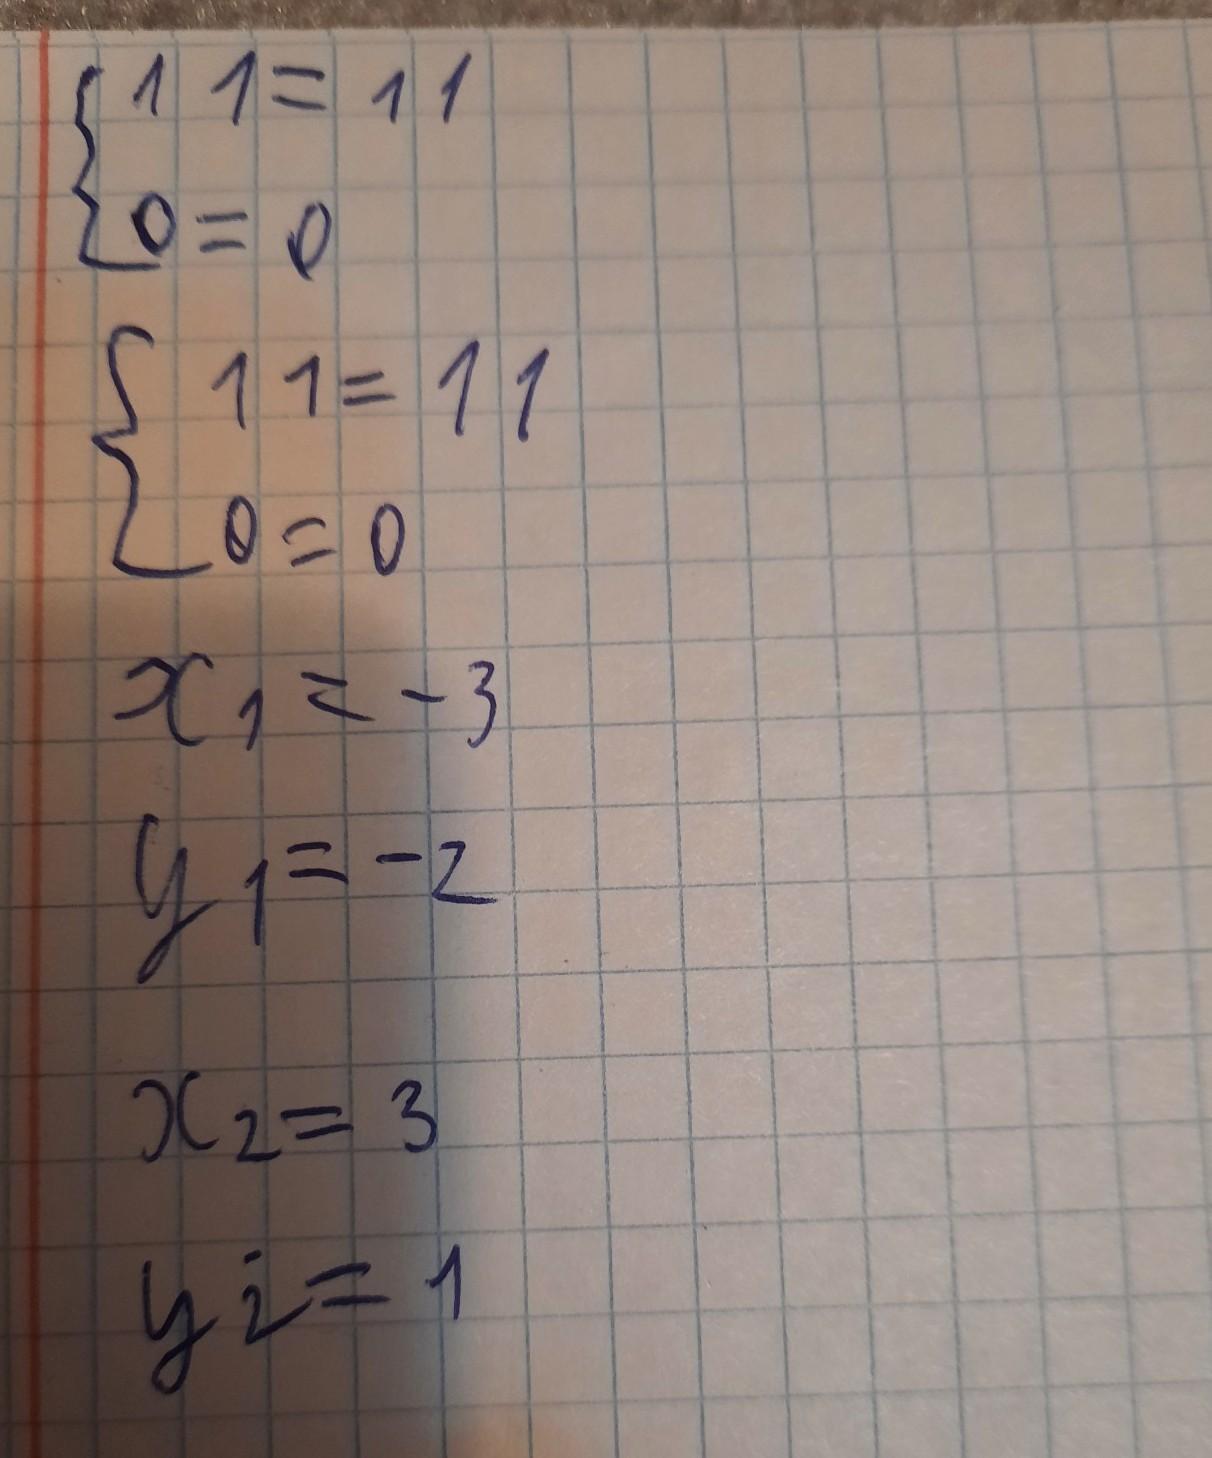 { 11 = 11
0 = 0
{ 11 = 11
0 = 0
x₁ = -3
y₁ = -2
x₂ = 3
y₂ = 1